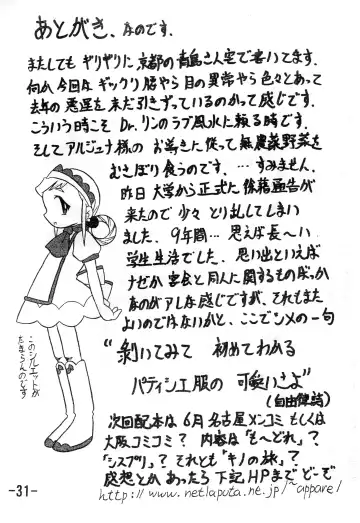 あとがき、なのです。
またしても ヤリヤリに 京都の青島さん宅で書いてます。
何か今回は ギックリ脇やら 目の異常やら 色々とあって
去年の悪運を 未だ引きずっているのかって感じです。
こういう時こそ Dr.リンのラブ風水に頼る時です。
そしてアルジュナ様の お導きに従って無農薬野菜を
むさぼり食うのです。…すみません。
昨日 大学から正式に 除籍通告が
来たので少々 とり乱してしまい
ました。9年間…思えば長〜い
学生生活でした。思い出といえば
ナゼか宴会と同人に関するものばっか
なのがアレな感じですが、それもまた
よいのではないかと、ここでシメの一句
“剥いてみて 初めてわかる
パティシエ服の 可愛いさよ”
(自由律詩)
このシルエットが
たまらんのです
次回配本は 6月 名古屋メンコミ もしくは
大阪コミコミ? 内容は「も〜どれ」?
「シスプリ」? それとも「キノの旅」?
感想とか あったら 下記HPまで どーぞ
http://www.netlaputa.ne.jp/~appare/
-31-